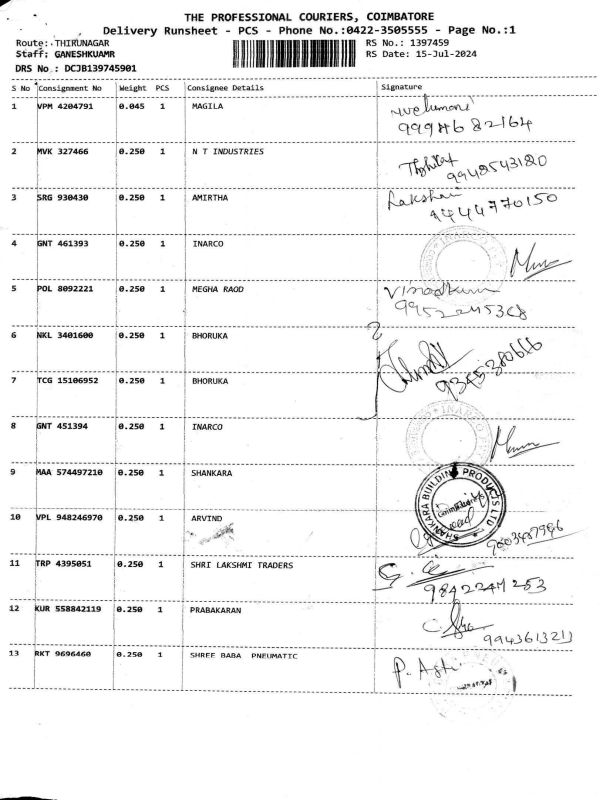 THE PROFESSIONAL COURIERS, COIMBATORE
Delivery Runsheet - PCS - Phone No.:0422-3505555 - Page No.:1
Route: THIRUNAGAR RS No.: 1397459
Staff: GANESHKUAMR RS Date: 15-Jul-2024
DRS No : DCJB139745901
S No Consignment No Weight PCS Consignee Details Signature
1 VPM 4204791 0.045 1 MAGILA
2 MVK 327466 0.250 1 N T INDUSTRIES
9942543120
3 SRG 930430 0.250 1 AMIRTHA
9444770150
4 GNT 461393 0.250 1 INARCO
5 POL 8092221 0.250 1 MEGHA RAOD
6 NKL 3401600 0.250 1 BHORUKA
9345380666
7 TCG 15106952 0.250 1 BHORUKA
8 GNT 451394 0.250 1 INARCO
9 MAA 574497210 0.250 1 SHANKARA
SHANKARA BUILDING PRODUCTS LTD
10 VPL 948246970 0.250 1 ARVIND
11 TRP 4395051 0.250 1 SHRI LAKSHMI TRADERS
9842247253
12 KUR 558842119 0.250 1 PRABAKARAN
9943613211
13 RKT 9696460 0.250 1 SHREE BABA PNEUMATIC